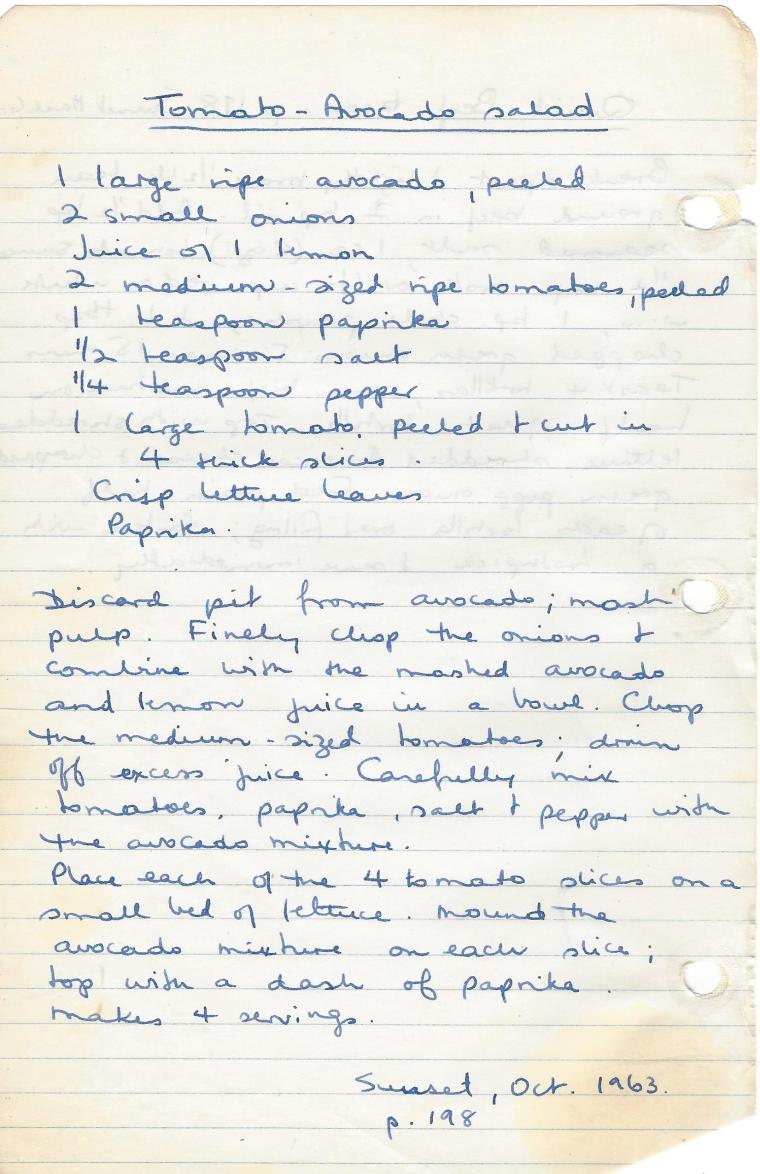 Tomato - Avocado salad
1 large ripe avocado, peeled
2 small onions
Juice of 1 lemon
2 medium-sized ripe tomatoes, peeled
1 teaspoon paprika
1/2 teaspoon salt
1/4 teaspoon pepper
1 large tomato, peeled & cut in
4 thick slices.
Crisp lettuce leaves
Paprika.
Discard pit from avocado; mash
pulp. Finely chop the onions &
combine with the mashed avocado
and lemon juice in a bowl. Chop
the medium-sized tomatoes; drain
off excess juice. Carefully mix
tomatoes, paprika, salt & pepper with
the avocado mixture.
Place each of the 4 tomato slices on a
small bed of lettuce. Mound the
avocado mixture on each slice;
top with a dash of paprika.
Makes 4 servings.
Sunset, Oct. 1963.
p. 198